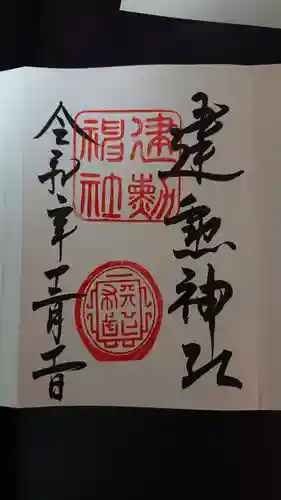 建勲神社
建勲
神社
令和元年十二月十二日